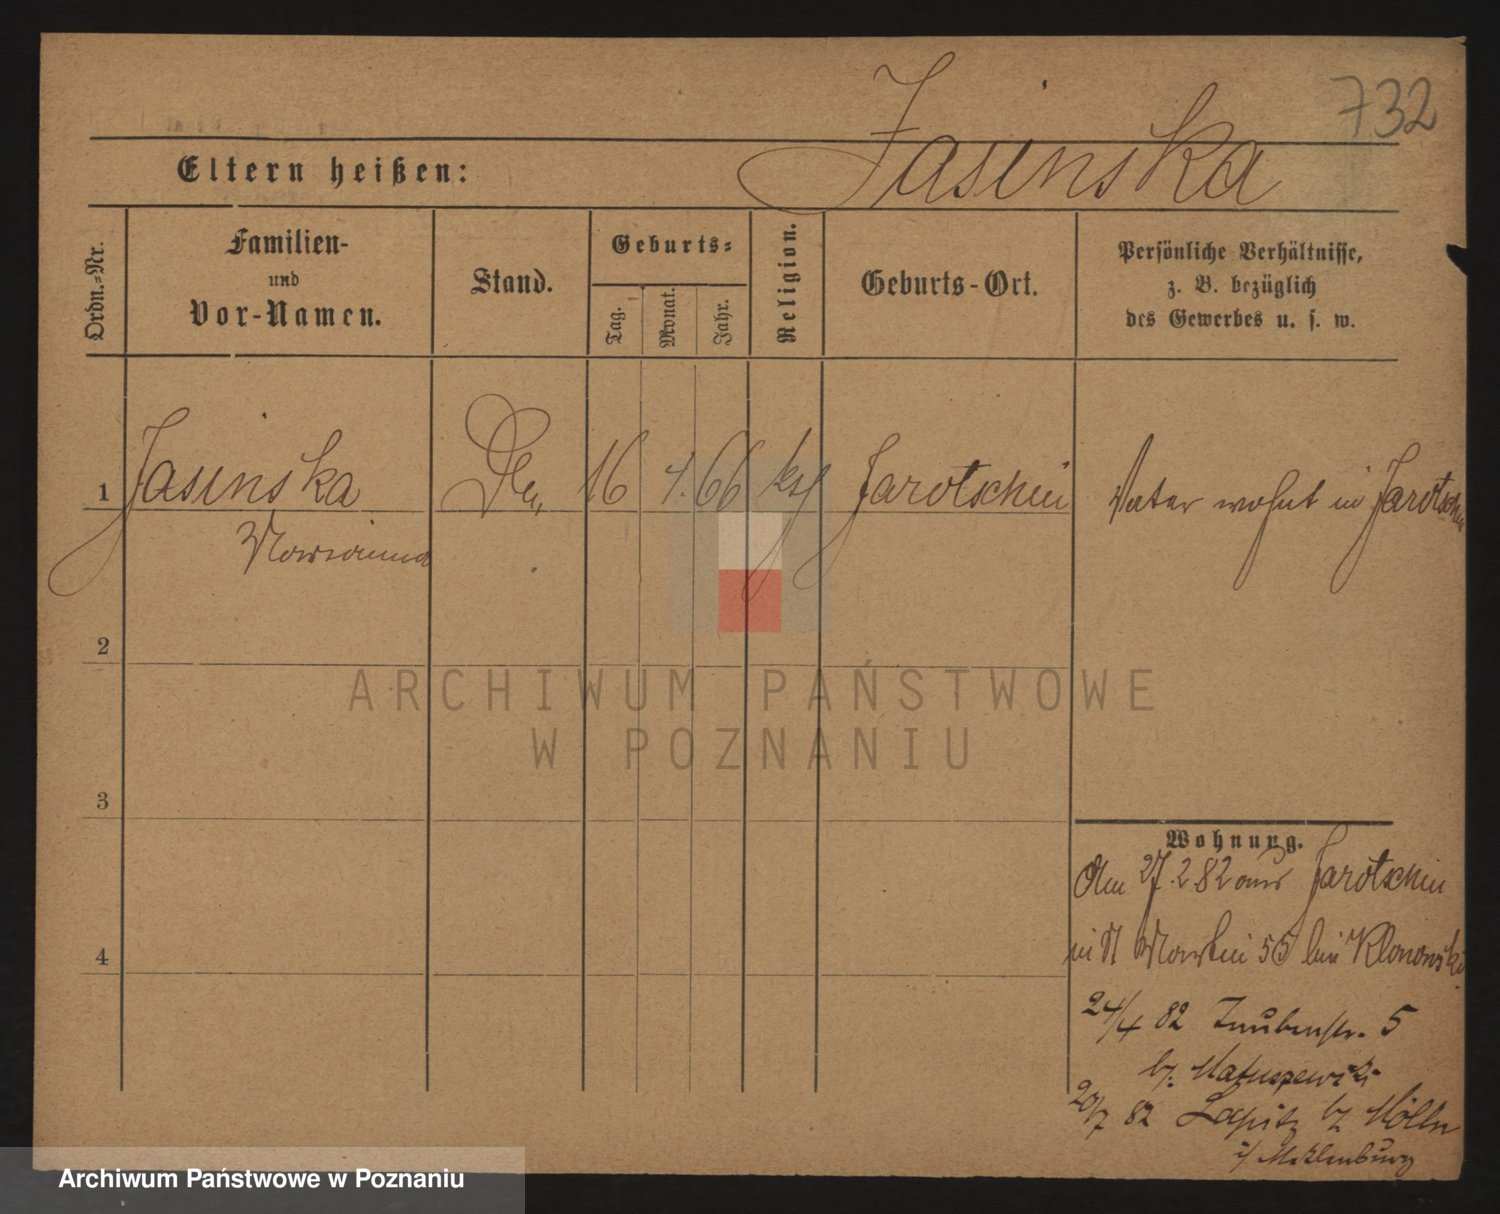 732
Jasinska
Eltern heißen:
Ordn.-Nr.
Familien-
und
Vor-Namen.
Stand.
Geburts-
Tag.
Monat.
Jahr.
Religion.
Geburts-Ort.
Persönliche Verhältnisse,
z. B. bezüglich
des Gewerbes u. s. w.
1 Jasinska 16 66 Jarotschin Vater wohnt in Jarotschin
2
3
4
Wohnung.
27.2.82 aus Jarotschin
Martin 55 bei Klonowski
24/4 82 Taubenstr. 5
bz. Matuszewski
20/7 82 Lapitz bz Mölln
i/ Mecklenburg
ARCHIWUM PAŃSTWOWE
W POZNANIU
Archiwum Państwowe w Poznaniu